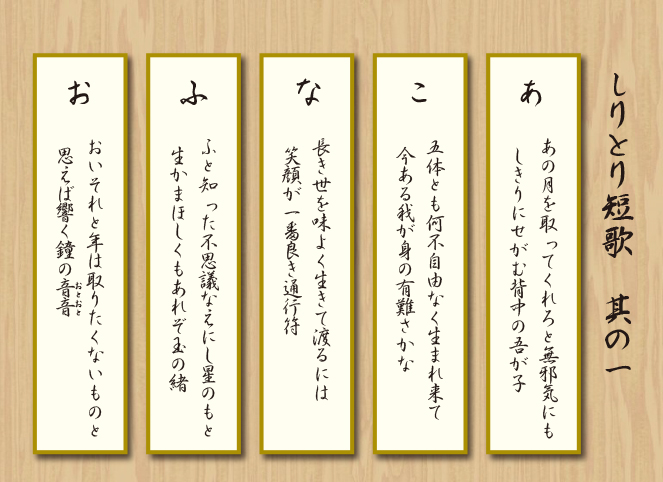 しりとり短歌　其の一
あ
あの月を取ってくれろと無邪気にも
しきりにせがむ背中の吾が子
こ
五体とも何不自由なく生まれ来て
今ある我が身の有難さかな
な
長き世を味よく生きて渡るには
笑顔が一番良き通行符
ふ
ふと知った不思議なえにし星のもと
生かまほしくもあれぞ玉の緒
お
おいそれと年は取りたくないものと
思えば響く鐘の音音
おとおと